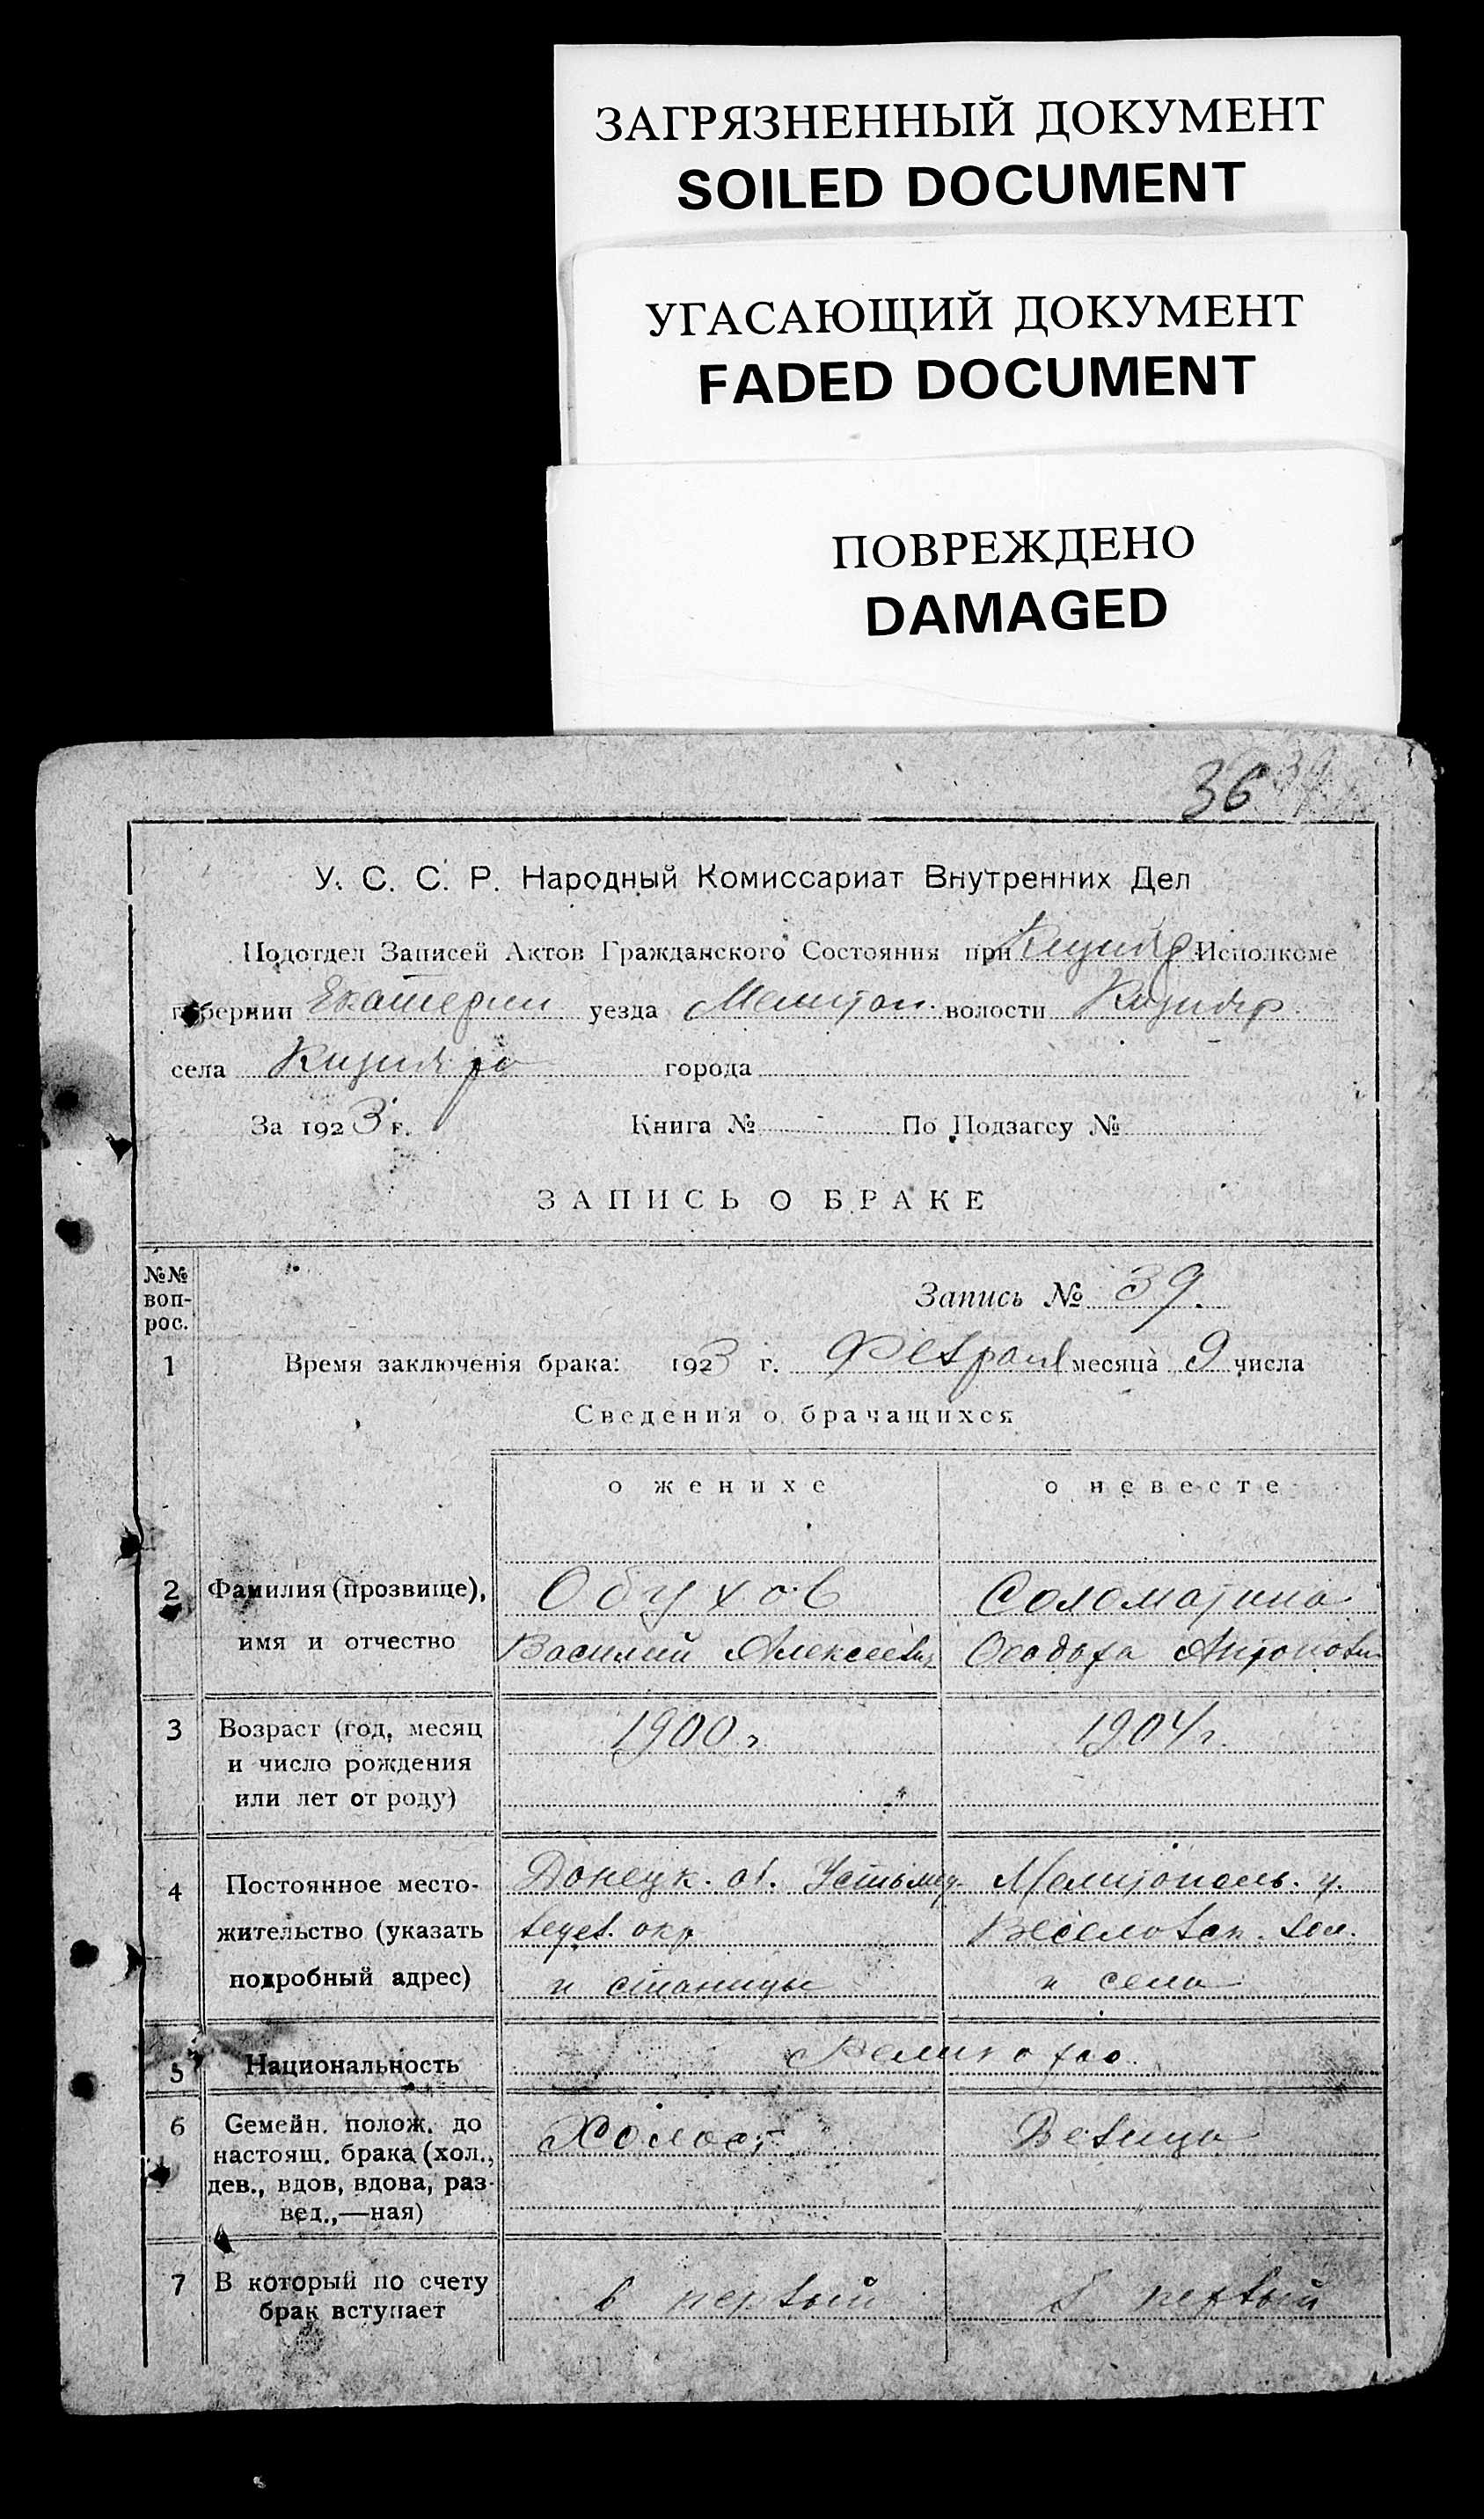 ЗАГРЯЗНЕННЫЙ ДОКУМЕНТ
SOILED DOCUMENT
УГАСАЮЩИЙ ДОКУМЕНТ
FADED DOCUMENT
ПОВРЕЖДЕНО
DAMAGED
36
У. С. С. Р. Народный Комиссариат Внутренних Дел
Подотдел Записей Актов Гражданского Состояния при Кизияр Исполкоме
губернии Екатерин уезда Мелитоп. волости Кизияр.
села Кизияра города
За 1923 г. Книга № По Подзагсу №
ЗАПИСЬ О БРАКЕ
№№ воп-рос.
Запись № 39.
1 Время заключенія брака: 1923 г. Февраля месяца 9 числа
Сведения о брачащихся
о женихе о невесте
2 Фамилия (прозвище), Обухов Соломатина
имя и отчество Василий Алексеевич Антоновн
3 Возраст (год, месяц 1900 г. 1904 г.
и число рождения
или лет от роду)
4 Постоянное место- Донецк. об. Устьмед- Мелитополь. у.
жительство (указать вецев. окр Веселовск. вол.
подробный адрес) и станицы и села
5 Национальность
6 Семейн. полож. до Холост Девица
настоящ. брака (хол.,
дев., вдов, вдова, раз-
вед.,—ная)
7 В который по счету в первый в первый
брак вступает